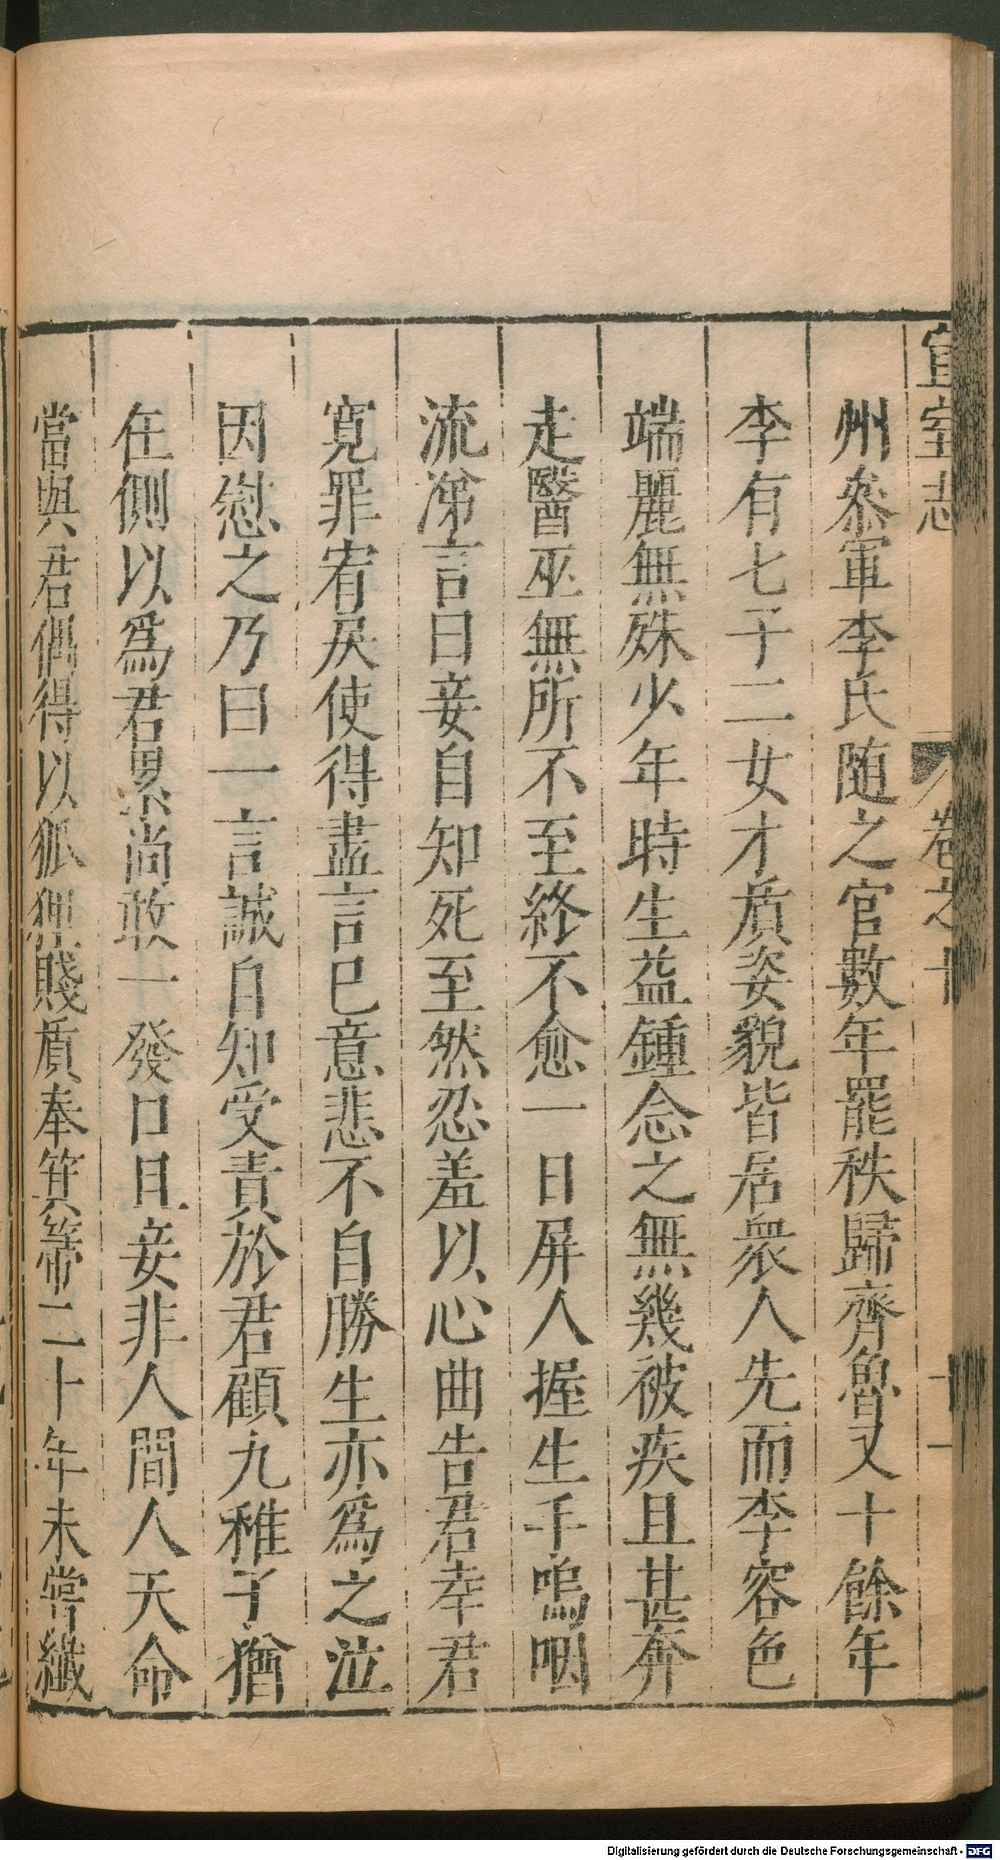 宣室志 卷之十 十一
州叅軍李氏随之官數年罷秩歸齊魯又十餘年
李有七子二女才質姿貌皆居衆人先而李容色
端麗無殊少年時生益鍾念之無幾被疾且甚奔
走醫巫無所不至終不愈一日屏人握生手嗚咽
流涕言曰妾自知死至然忍羞以心曲告君幸君
寛罪宥戾使得盡言已意悲不自勝生亦爲之泣
因慰之乃曰一言誠自知受責於君顧九稚子猶
在側以爲君累尚敢一發口且妾非人間人天命
當與君偶得以狐狸賤質奉箕箒二十年未嘗纎
Digitalisierung gefördert durch die Deutsche Forschungsgemeinschaft - DFG